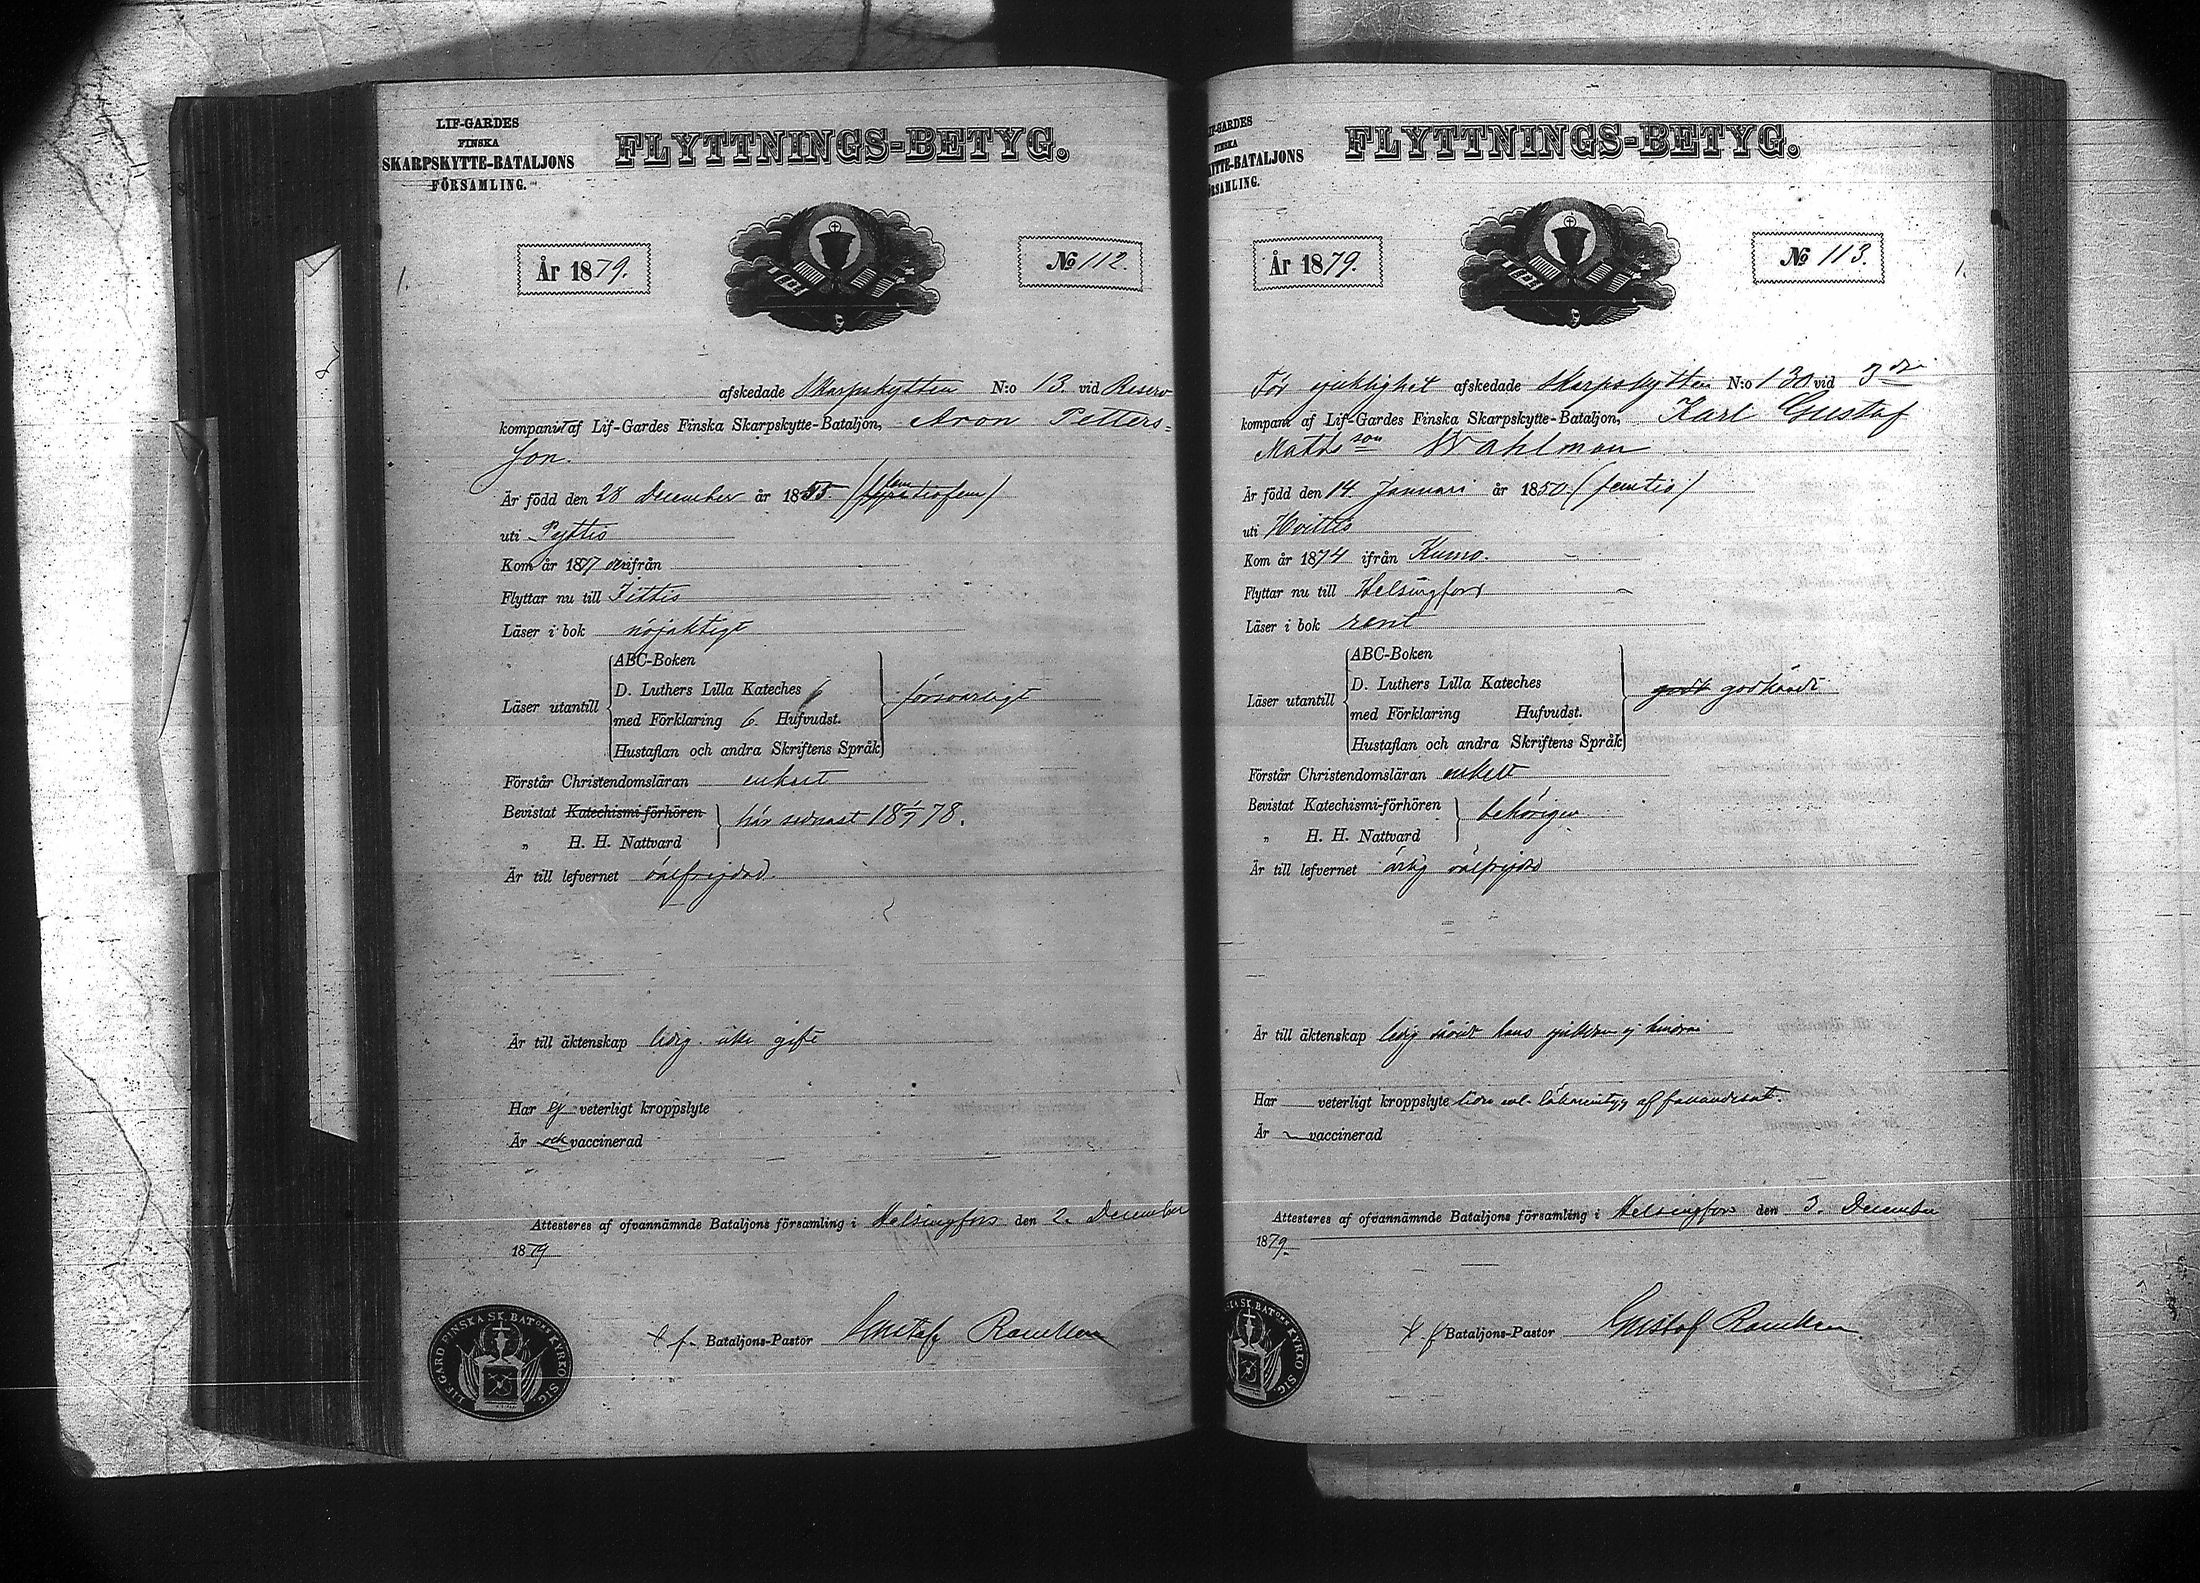 LIF-GARDES
FINSKA
SKARPSKYTTE-BATALJONS
FÖRSAMLING.
FLYTTNINGS-BETYG.
År 1879.
No 112.
afskedade Skarpskytten N:o 13. vid Reserv
kompaniet af Lif-Gardes Finska Skarpskytte-Bataljon, Aron Petters-
son.
Är född den 28 December år 1855. (femtiofem)
uti Pyttis
Kom år 1877 ifrån
Flyttar nu till Iittis
Läser i bok nöjaktigt
Läser utantill
ABC-Boken
D. Luthers Lilla Kateches
med Förklaring 6. Hufvudst.
Hustaflan och andra Skriftens Språk
försvarligt
Förstår Christendomsläran enkelt
Bevistat Katechismi-förhören
„ H. H. Nattvard
här sednast 18 78.
Är till lefvernet välfrejdad.
Är till äktenskap ledig. icke gift
Har ej veterligt kroppslyte
Är och vaccinerad
Attesteres af ofvannämnde Bataljons församling i Helsingfors den 2. December
1879
t f. Bataljons-Pastor Gustaf
LIF-GARD FINSKA SK. BATONS KYRKO SIG.
LIF-GARDES
FINSKA
YTTE-BATALJONS
RSAMLING.
FLYTTNINGS-BETYG.
År 1879.
No 113.
För sjuklighet afskedade Skarpskytten N:o 130 vid 3dje
kompani af Lif-Gardes Finska Skarpskytte-Bataljon, Karl Gustaf
Matsson Wahlman
Är född den 14. Januari år 1850. (femtio)
uti Hvittis
Kom år 1874 ifrån Kumo.
Flyttar nu till Helsingfors
Läser i bok rent
Läser utantill
ABC-Boken
D. Luthers Lilla Kateches
med Förklaring Hufvudst.
Hustaflan och andra Skriftens Språk
godt godkändt
Förstår Christendomsläran enkelt
Bevistat Katechismi-förhören
„ H. H. Nattvard
behörigen
Är till lefvernet ärlig välfrejdad
Är till äktenskap ledig såvidt hans sjukdom ej hindrar
Har veterligt kroppslyte
Är vaccinerad
Attesteres af ofvannämnde Bataljons församling i Helsingfors den 3. December
1879.
t. f Bataljons-Pastor Gustaf
SKA SK. BATONS KYRKO SIG.